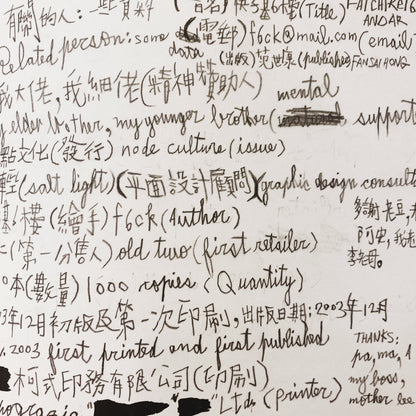 有關的人: 些資料
(書名) 快勞基6樓 (Title) FAI CHI KEI
ANDAR
Related person: some data
(電郵) f6ck@mail.com (email)
(出版) 范世康 (published) FAN SAI HONG
我大佬, 我細佬 (精神贊助人)
my elder brother, my younger brother (mental support
點文化 (發行) node culture (issue)
輕 (salt light) (平面設計顧問) (graphic design consult
基6樓 (繪手) f6ck (Author)
二 (第一分售人) old two (first retailer)
本 (數量) 1000 copies (Quantity)
03年12月初版及第一次印刷, 出版日期: 2003年12月
2003 first printed and first published
柯式印務有限公司 (印刷)
" Ltd. (printer)
多謝: 老豆,
阿史, 我老
李母.
THANKS:
pa, ma, A
my boss,
mother lee